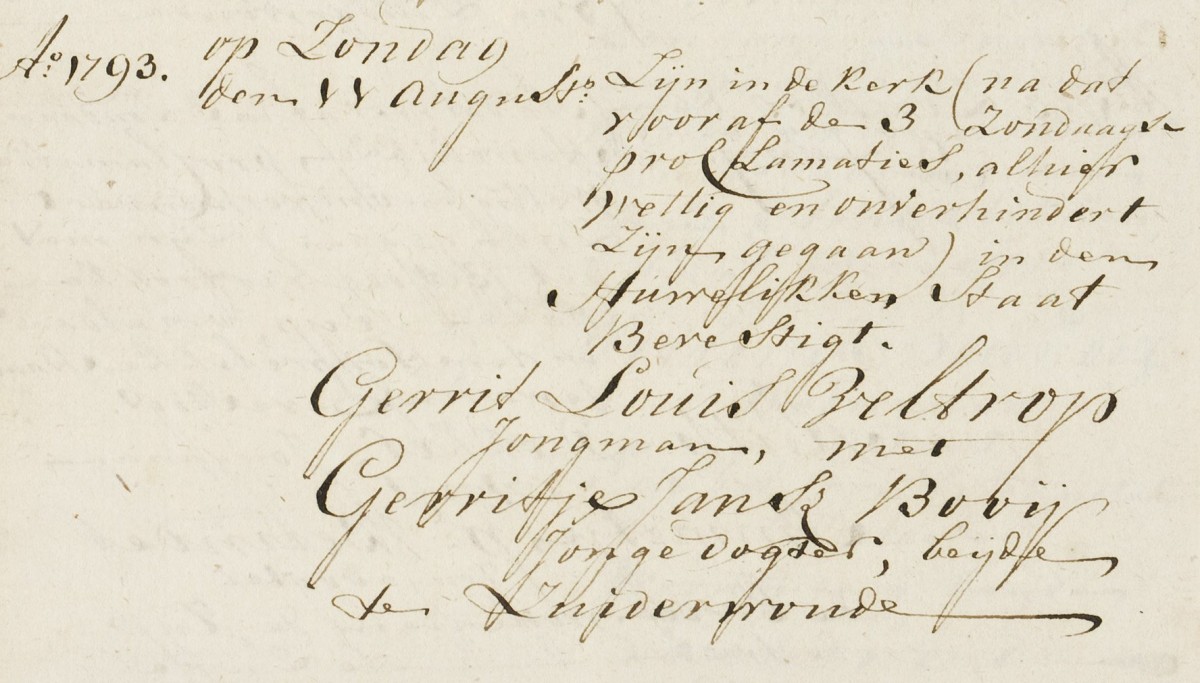 Aº 1793. op Zondag
den 11 Augustº
Zijn in de kerk (na dat
vooraf de 3 Zondaags
proclamaties, alhier
wettig en onverhindert
Zijn gegaan) in den
Huwelikken Staat
Bevestigt.
Gerrit Louis Veltrop
Jongman, met
Gerritje Jansz Bovij
Jonge dogter, beijde
te Zuiderwoude